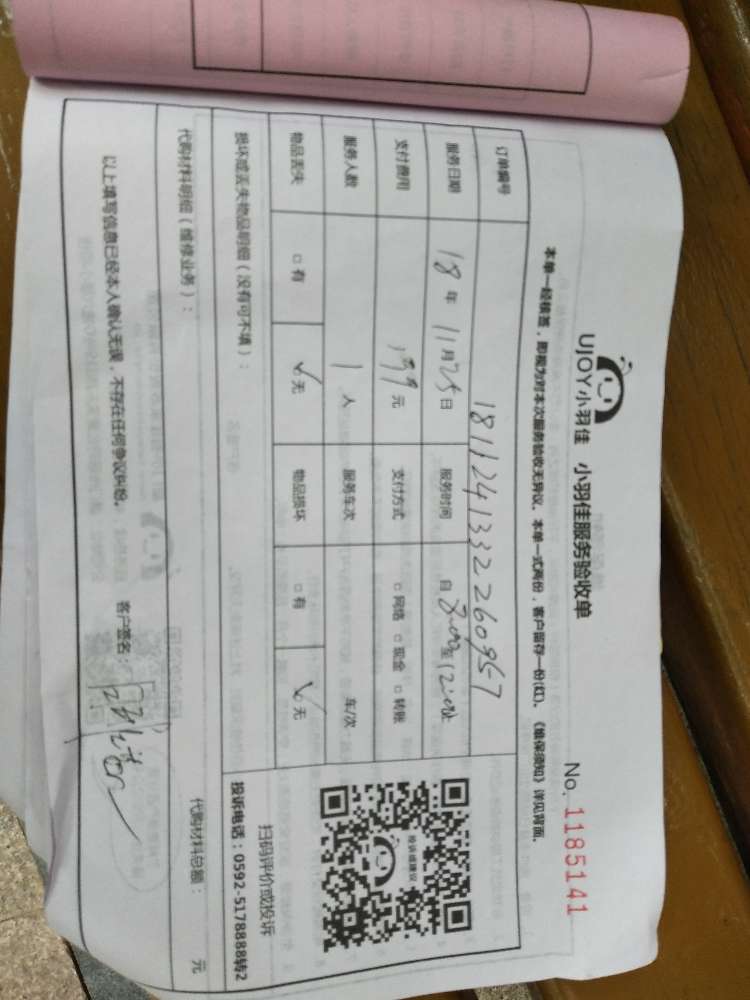 UJOY小羽佳 小羽佳服务验收单
No. 1185141
本单一经核签，即视为对本次服务验收无异议。本单一式两份，客户留存一份(红)。《维保须知》详见背面。
订单编号 1811241332260957
服务日期 18年 11月25日 服务时间 自8:00至12:00止
支付费用 199元 支付方式 □网络 □现金 □转账
服务人数 1人 服务车次 车/次
物品丢失 □有 ✓□无 物品损坏 □有 ✓□无
投诉或建议
扫码评价或投诉
投诉电话：0592-5178888转2
损坏或丢失物品明细（没有可不填）：
代购材料明细（维修业务）： 代购材料总额： 元
以上填写信息已经本人确认无误，不存在任何争议纠纷。 客户签名：